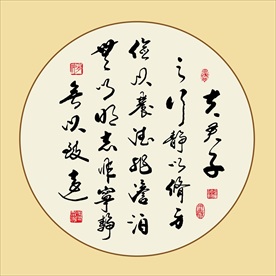 夫君子
之行静以脩身
俭以养德非澹泊
無以明志非寧静
無以致遠